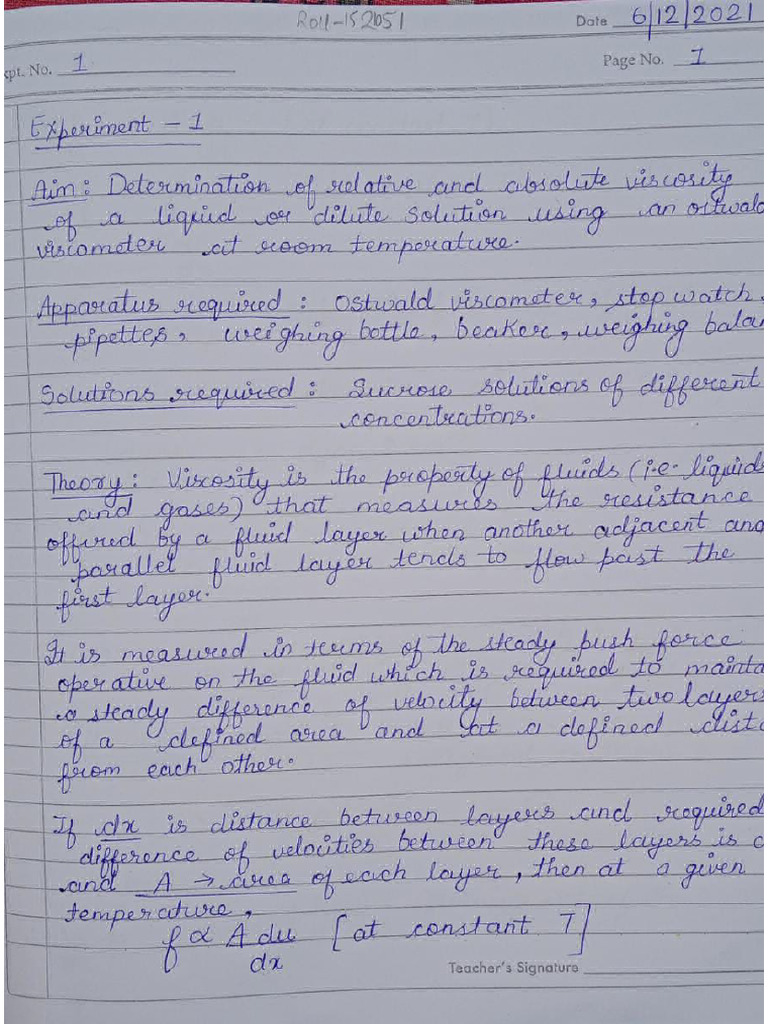 Roll-152051
Date 6/12/2021
xpt. No. 1
Page No. 1
Experiment - 1
Aim: Determination of relative and absolute viscosity
of a liquid or dilute solution using an ostwald
viscometer at room temperature.
Apparatus required : Ostwald viscometer, stop watch,
pipettes, weighing bottle, beaker, weighing balan
Solutions required : Sucrose solutions of different
concentrations.
Theory : Viscosity is the property of fluids (i.e. liquids
and gases) that measures the resistance
offered by a fluid layer when another adjacent and
parallel fluid layer tends to flow past the
first layer.
It is measured in terms of the steady push force
operative on the fluid which is required to mainta
a steady difference of velocity between two layers
of a defined area and at a defined dista
from each other.
If dx is distance between layers and required
difference of velocities between these layers is d
and A → area of each layer, then at a given
temperature,
f ∝ A du/dx [at constant T]
Teacher's Signature